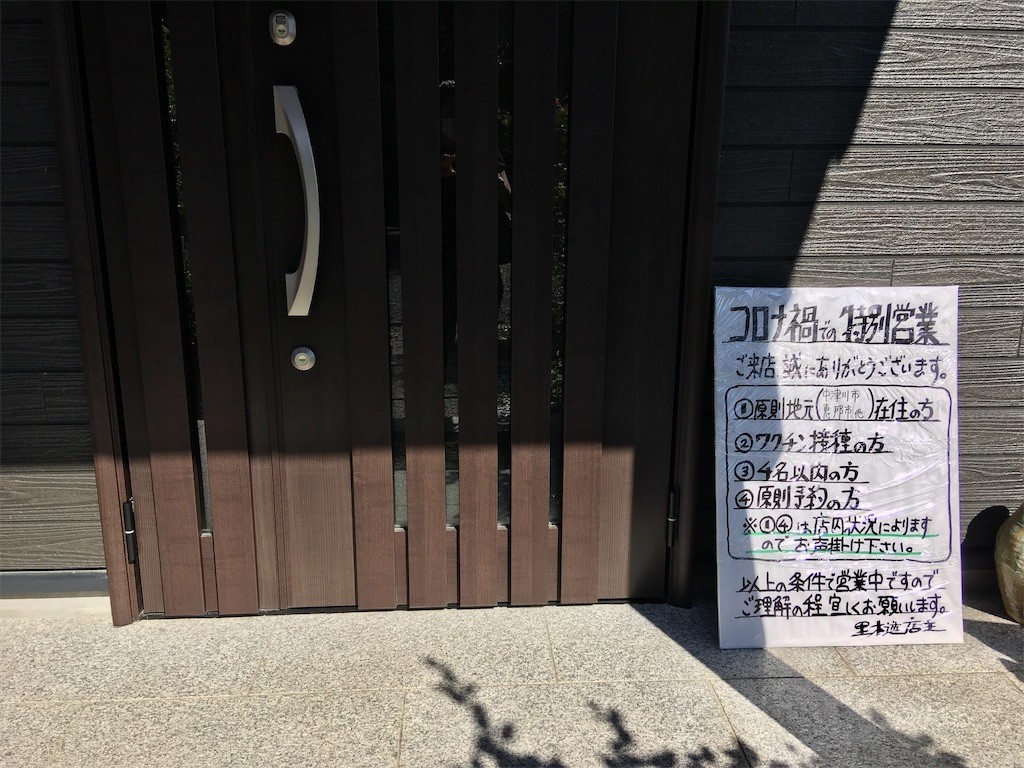 コロナ禍での特別営業
ご来店誠にありがとうございます。
①原則地元(中津川市恵那市他)在住の方
②ワクチン接種の方
③4名以内の方
④原則予約の方
※①④は店内状況によります
のでお声掛け下さい。
以上の条件で営業中ですので
ご理解の程宜しくお願いします。
店主